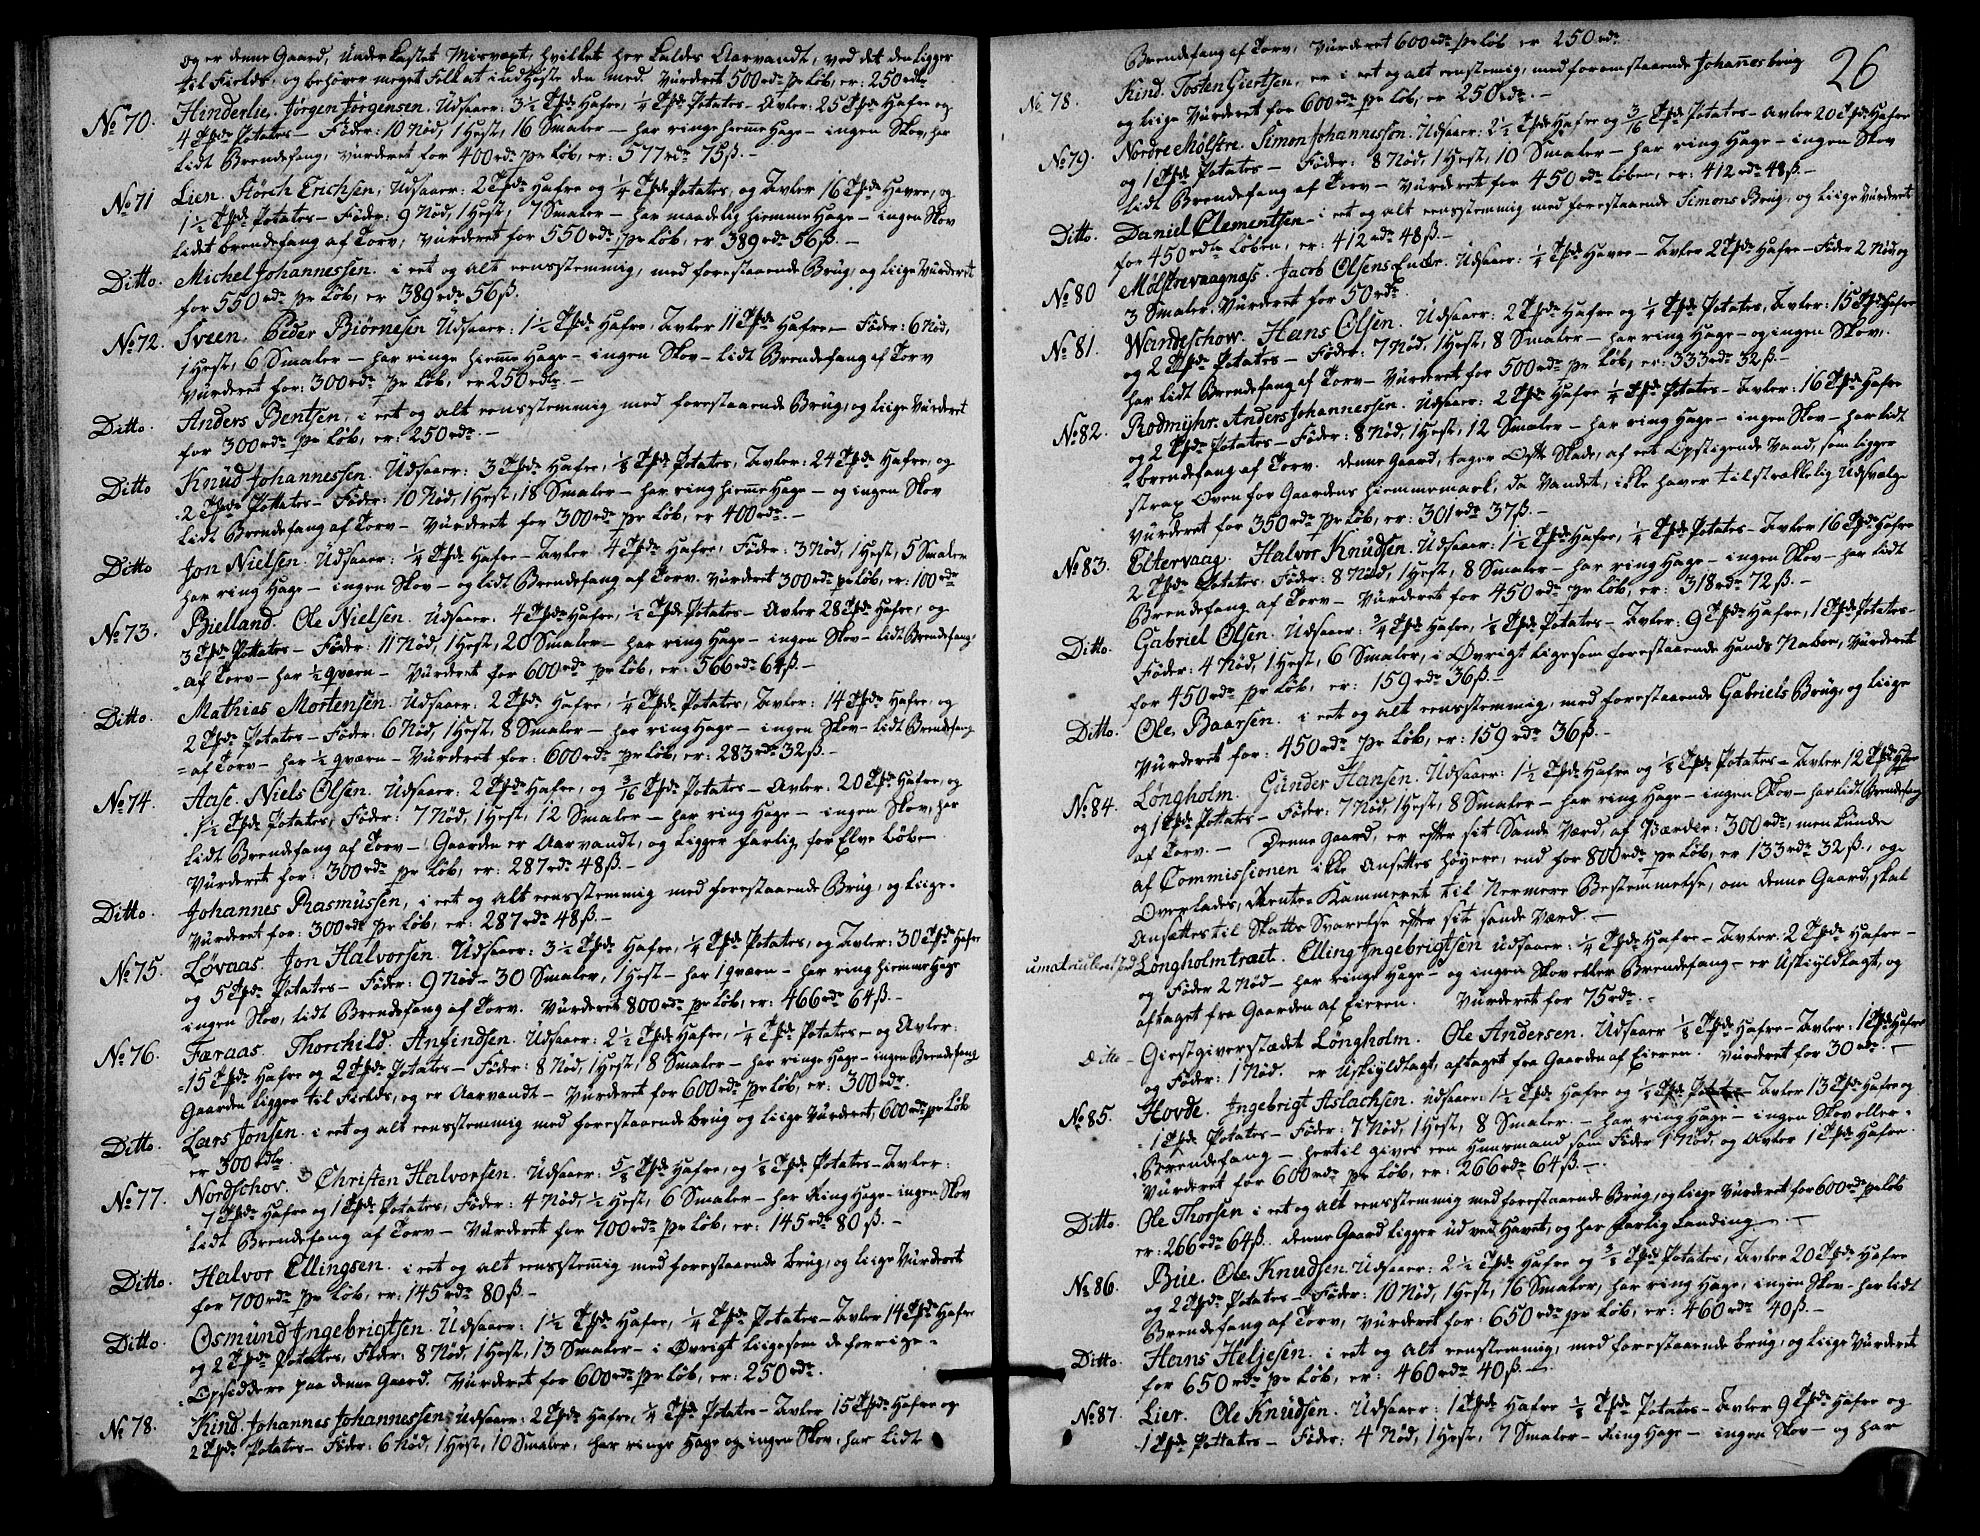 og er denne Gaard, Underkastet Misvæxt, hvilket her kaldes Aarvandt, ved det den ligger
til Fields, og behøver meget Folk at indHøste den med. Vurderet 500 rdr pr Løb, er: 250 rdr
No 70. Hinderlie. Jørgen Jørgensen. Udsaaer: 3½ Tønder Hafre, ¼ Tønde Potates - Avler: 25 Tønder Hafre og
4 Tønder Potates - Føder: 10 Nød, 1 Hest, 16 Smaler - har ringe hiemme Hage - ingen Skov, har
lidt Brendefang, Vurderet for 400 rdr pr Løb, er: 577 rdr 75 ß. -
No 71 Lien. Størch Erichsen, Udsaaer: 2 Tønder Hafre og ¼ Tønde Potates, og Avler 16 Tønder Havre, og
1½ Tønde Potates - Føder: 9 Nød, 1 Hest, 7 Smaler - har maadelig hiemme Hage - ingen Skov
lidt brendefang af Torv, Vurderet for 550 rdr pr Løb, er 389 rdr 56 ß. -
Ditto. Michel Johannessen. i eet og alt eensstemmig, med forestaaende Brug, og liige Vurderet
for 550 rdr pr Løb, er 389 rdr 56 ß.
No 72. Sveen. Peder Biørnesen Udsaaer: 1½ Tønde Hafre, Avler 11 Tønder Hafre - Føder: 6 Nød,
1 Hest, 6 Smaler - har ringe hiemme Hage - ingen Skov - lidt Brendefang af Torv
Vurderet for: 300 rdr pr Løb, er 250 rdlr. -
Ditto. Anders Bentsen, i eet og alt eensstemmig med forestaaende Brug, og liige Vurderet
for 300 rdr pr Løb, er: 250 rdr. -
Ditto Knud Johannessen. Udsaaer: 3 Tønder Hafre, ⅛ Tønde Potates, Avler: 24 Tønder Hafre, og
2 Tønder Pottates - Føder: 10 Nød, 1 Hest, 18 Smaler - har ring hiemme Hage - og ingen Skov
lidt Brendefang af Torv - Vurderet for 300 rdr pr Løb, er 400 rdr. -
Ditto Jon Nielsen. Udsaaer: ¼ Tønde Hafre - Avler 4 Tønder Hafre, Føder: 3 Nød, 1 Hest, 5 Smaler
har ring Hage - ingen Skov - og lidt Brendefang af Torv. Vurderet 300 rdr pr Løb, er: 100 rdr
No 73. Bielland. Ole Nielsen. Udsaaer: 4 Tønder Hafre, ½ Tønde Potates - Avler 28 Tønder Hafre, og
3 Tønder Pottates - Føder: 11 Nød, 1 Hest, 20 Smaler - har ring Hage - ingen Skov - lidt Brendefang
af Torv - har ½ qværn - Vurderet for 600 rdr pr Løb, er: 566 rdr 64 ß. -
Ditto. Mathias Mortensen. Udsaaer: 2 Tønder Hafre, ¼ Tønde Potates, Avler: 14 Tønder Hafre, og
2 Tønder Potates - Føder: 6 Nød, 1 Hest, 8 Smaler - har ring Hage - ingen Skov - lidt Brendefang
af Torv - har ½ qværn - Vurderet for: 600 rdr pr Løb, er: 283 rdr 32 ß. -
No 74. Aase. Niels Olsen. Udsaaer: 2 Tønder Hafre, og 3/16 Tønde Potates - Avler: 20 Tønder Hafre, og
1½ Tønde Potates, Føder: 7 Nød, 1 Hest, 12 Smaler - har ring Hage - ingen Skov, har
lidt Brendefang af Torv - Gaarden er Aarvandt, og Ligger farlig for Elve Løb -
Vurderet for: 300 rdr pr Løb, er: 287 rdr 48 ß. -
Ditto. Johannes Rasmussen, i eet og alt eensstemmig med forestaaende Brug, og liige
Vurderet for: 300 rdr pr Løb, er: 287 rdr 48 ß. -
No 75. Løvaas. Jon Halvorsen. Udsaaer: 3½ Tønde Hafre, ¼ Tønde Potates, og Avler: 30 Tønder Hafre
og 5 Tønder Potates - Føder: 9 Nød - 30 Smaler, 1 Hest - har 1 qværn - har ring hiemme Hage
ingen Skov, lidt Brendefang af Torv. Vurderet 800 rdr pr Løb, er: 466 rdr 64 ß. -
No 76. Færaas. Thorchild Anfindsen. Udsaaer: 2½ Tønde Hafre, ¼ Tønde Potates - og Avler:
15 Tønder Hafre og 2 Tønder Potates - Føder: 8 Nød, 1 Hest, 8 Smaler - har ringe Hage - ingen Brendefang
Gaarden ligger til Fields, og er Aarvandt - Vurderet for 600 rdr pr Løb, er: 300 rdr.
Ditto. Lars Jonsen. i eet og alt eensstemmig med forestaaende brug og liige Vurderet, 600 rdr pr Løb
er 300 rdlr.
No 77. Nordschov. Christen Halvorsen. Udsaaer: ⅝ Tønde Hafre, og ⅛ Tønde Potates - Avler:
7 Tønder Hafre og 1 Tønde Potates, Føder: 4 Nød, ½ Hest, 6 Smaler - har Ring Hage - ingen Skov
lidt Brendefang af Torv - Vurderet for 700 rdr pr Løb, er: 145 rdr 80 ß. -
Ditto. Halvor Ellingsen. i eet og alt eensstemmig med forestaaende brug, og liige Vurderet
for 700 rdr pr Løb, er: 145 rdr 80 ß. -
Ditto. Osmund Ingebrigtsen. Udsaaer: 1½ Tønde Hafre, ¼ Tønde Potates - Avler 14 Tønder Hafre
og 2 Tønder potates, Føder: 8 Nød, 1 Hest, 13 Smaler - i Øvrigt liigesom de forrige
Opsiddere paa denne Gaard. Vurderet for 600 rdr pr Løb, er: 250 rdr.
No 78. Kind. Johannes Johannessen, Udsaaer: 2 Tønder Hafre, ¼ Tønde Potates - Avler 15 Tønder Hafre og
2 Tønder Potates - Føder: 6 Nød, 1 Hest, 10 Smaler, har ringe Hage og ingen Skov, har lidt
26
Brendefang af Torv, Vurderet 600 rdr pr Løb er 250 rdr.
No 78. Kind. Tosten Giertsen, er i eet og alt eenstemig, med foromstaaende Johannes brug
og liige Vurderet for 600 rdr pr Løb, er 250 rdr. -
No 79. Nordre Mølstre. Simon Johannessøn. Udsaaer: 2½ Tønde Hafre og 3/16 Tønde Potates - Avler 20 Tønder Hafre
og 1 Tønde Potates - Føder: 8 Nød, 1 Hest, 10 Smaler - har ring Hage - ingen Skov
lidt Brendefang af Torv - Vurderet for 450 rdr Løben, er: 412 rdr 48 ß. -
Ditto. Daniel Clementsen - i eet og alt eensstemmig med forestaaende Simons Brug, og liige Vurderet
for 450 rdlr Løben, er: 412 rdr 48 ß. -
No 80 Mølstrevaagnæss. Jacob Olsens Enke. Udsaaer: ¼ Tønde Havre - Avler 2 Tønder Hafre - Føder 2 Nød og
3 Smaler. Vurderet for 50 rdr.
No 81. Wandeschow. Hans Olsen. Udsaaer: 2 Tønder Hafre og ¼ Tønde Potates, Avler: 15 Tønder Hafre
og 2 Tønder Potates - Føder: 7 Nød, 1 Hest, 8 Smaler - har ring Hage - og ingen Skov,
har lidt Brendefang af Torv - Vurderet for 500 rdr pr Løb, er: 333 rdr 32 ß. -
No 82. Rodmyhr. Anders Johannessen. Udsaaer: 2 Tønder Hafre ¼ Tønde Potates - Avler: 16 Tønder Hafre
og 2 Tønder Potates - Føder: 8 Nød, 1 Hest, 12 Smaler - har ring Hage - ingen Skov - har lidt
brendefang af Torv. denne Gaard, tager Ofte Skade, af eet Opstigende Vand, som ligger
strax Oven for Gaardens hiemmemark, da Vandet, ikke haver tilstrækkelig Udsvalg
Vurderet for 350 rdr pr Løb, er: 301 rdr 37 ß. -
No 83. Eltervaag. Halvor Knudsen. Udsaaer: 1½ Tønde Hafre, ¼ Tønde Potates - Avler 16 Tønder Hafre
2 Tønder Potates. Føder: 8 Nød, 1 Hest, 8 Smaler - har ring Hage - ingen Skov - har lidt
Brendefang af Torv - Vurderet for 450 rdr pr Løb, er: 318 rdr 72 ß. -
Ditto. Gabriel Olsen. Udsaaer: ¾ Tønde Hafre, ⅛ Tønde Potates - Avler: 9 Tønder Hafre, 1 Tønde Potates -
Føder: 4 Nød, 1 Hest, 6 Smaler, i Øvrigt ligesom forestaaende Hands Naboe, Vurderet
for 450 rdr pr Løb, er: 159 rdr 36 ß. -
Ditto. Ole Baarsen. i eet og alt eensstemmig, med forestaaende Gabriels Brug, og liige
Vurderet for: 450 rdr pr Løb, er: 159 rdr 36 ß. -
No 84. Løngholm. Gunder Hansen. Udsaaer: 1½ Tønde Hafre og ⅛ Tønde Potates - Avler 12 Tønder Hafre
og 1 Tønde Potates - Føder: 7 Nød 1 Hest, 8 Smaler - har ring Hage - ingen Skov - har lidt Brendefang
af Torv. - Denne Gaard, er efter sit Sande Værd, af Værdie: 300 rdr, men kunde
af Commissionen ikke Ansettes høyere, end for 800 rdr pr Løb, er 133 rdr 32 ß., og
Overlades, Rente-Kammeret til Nermere Bestemmelse, om denne Gaard, skal
Ansættes til Skatte Svarelse efter sit sande Værd. -
umatriculeret Løngholmtræet. Elling Ingebrigtsen udsaaer: ¼ Tønde Hafre - Avler: 2 Tønder Hafre -
og Føder 2 Nød - har ringe Hage - og ingen Skov eller Brendefang - er Uskyldlagt, og
aftaget fra Gaarden af Eieren. Vurderet for 75 rdr. -
ditto - Giestgiverstædet Løngholm. Ole Andersen. Udsaaer ⅛ Tønde Hafre - Avler: 1 Tønde Hafre
og Føder: 1 Nød. er Uskyldlagt, aftaget fra Gaarden af Eieren. Vurderet for 30 rdr. -
No 85. Hovde. Ingebrigt Aslachsen. udsaaer: 1½ Tønde Hafre og ⅛ Tønde Potates Avler 13 Tønder Hafre og
1 Tønde Potates - Føder: 7 Nød, 1 Hest, 8 Smaler. - har ring Hage - ingen Skov eller
Brendefang - hertil gives een Huusmand som Føder 1 Nød, og Avler 1 Tønde Hafre.
Vurderet for 600 rdr pr Løb, er: 266 rdr 64 ß. -
Ditto. Ole Thorsen i eet og alt eensstemmig med forestaaende Brug, og liige Vurderet for 600 rdr pr Løb
er: 266 rdr 64 ß. denne Gaard Ligger ud ved Havet, og har farlig Landing. -
No 86. Bue. Ole Knudsen. Udsaaer: 2½ Tønde Hafre og ⅜ Tønde Potates, Avler 20 Tønder Hafre
og 2 Tønder Potates - Føder: 10 Nød, 1 Hest, 16 Smaler, har ring Hage, ingen Skov - har lidt
Brendefang af Torv, Vurderet for: 650 rdr pr Løb, er: 460 rdr 40 ß. -
Ditto. Hans Heljesen. i eet og alt eenstemmig, med forestaaende brug, og liige Vurderet
for 650 rdr pr Løb, er: 460 rdr 40 ß. -
No 87. Lier. Ole Knudsen. Udsaaer: 1 Tønde Hafre ⅛ Tønde Potates - Avler 9 Tønder Hafre og
1 Tønde Pottates - Føder: 4 Nød, 1 Hest, 7 Smaler - Ring Hage - ingen Skov - og har